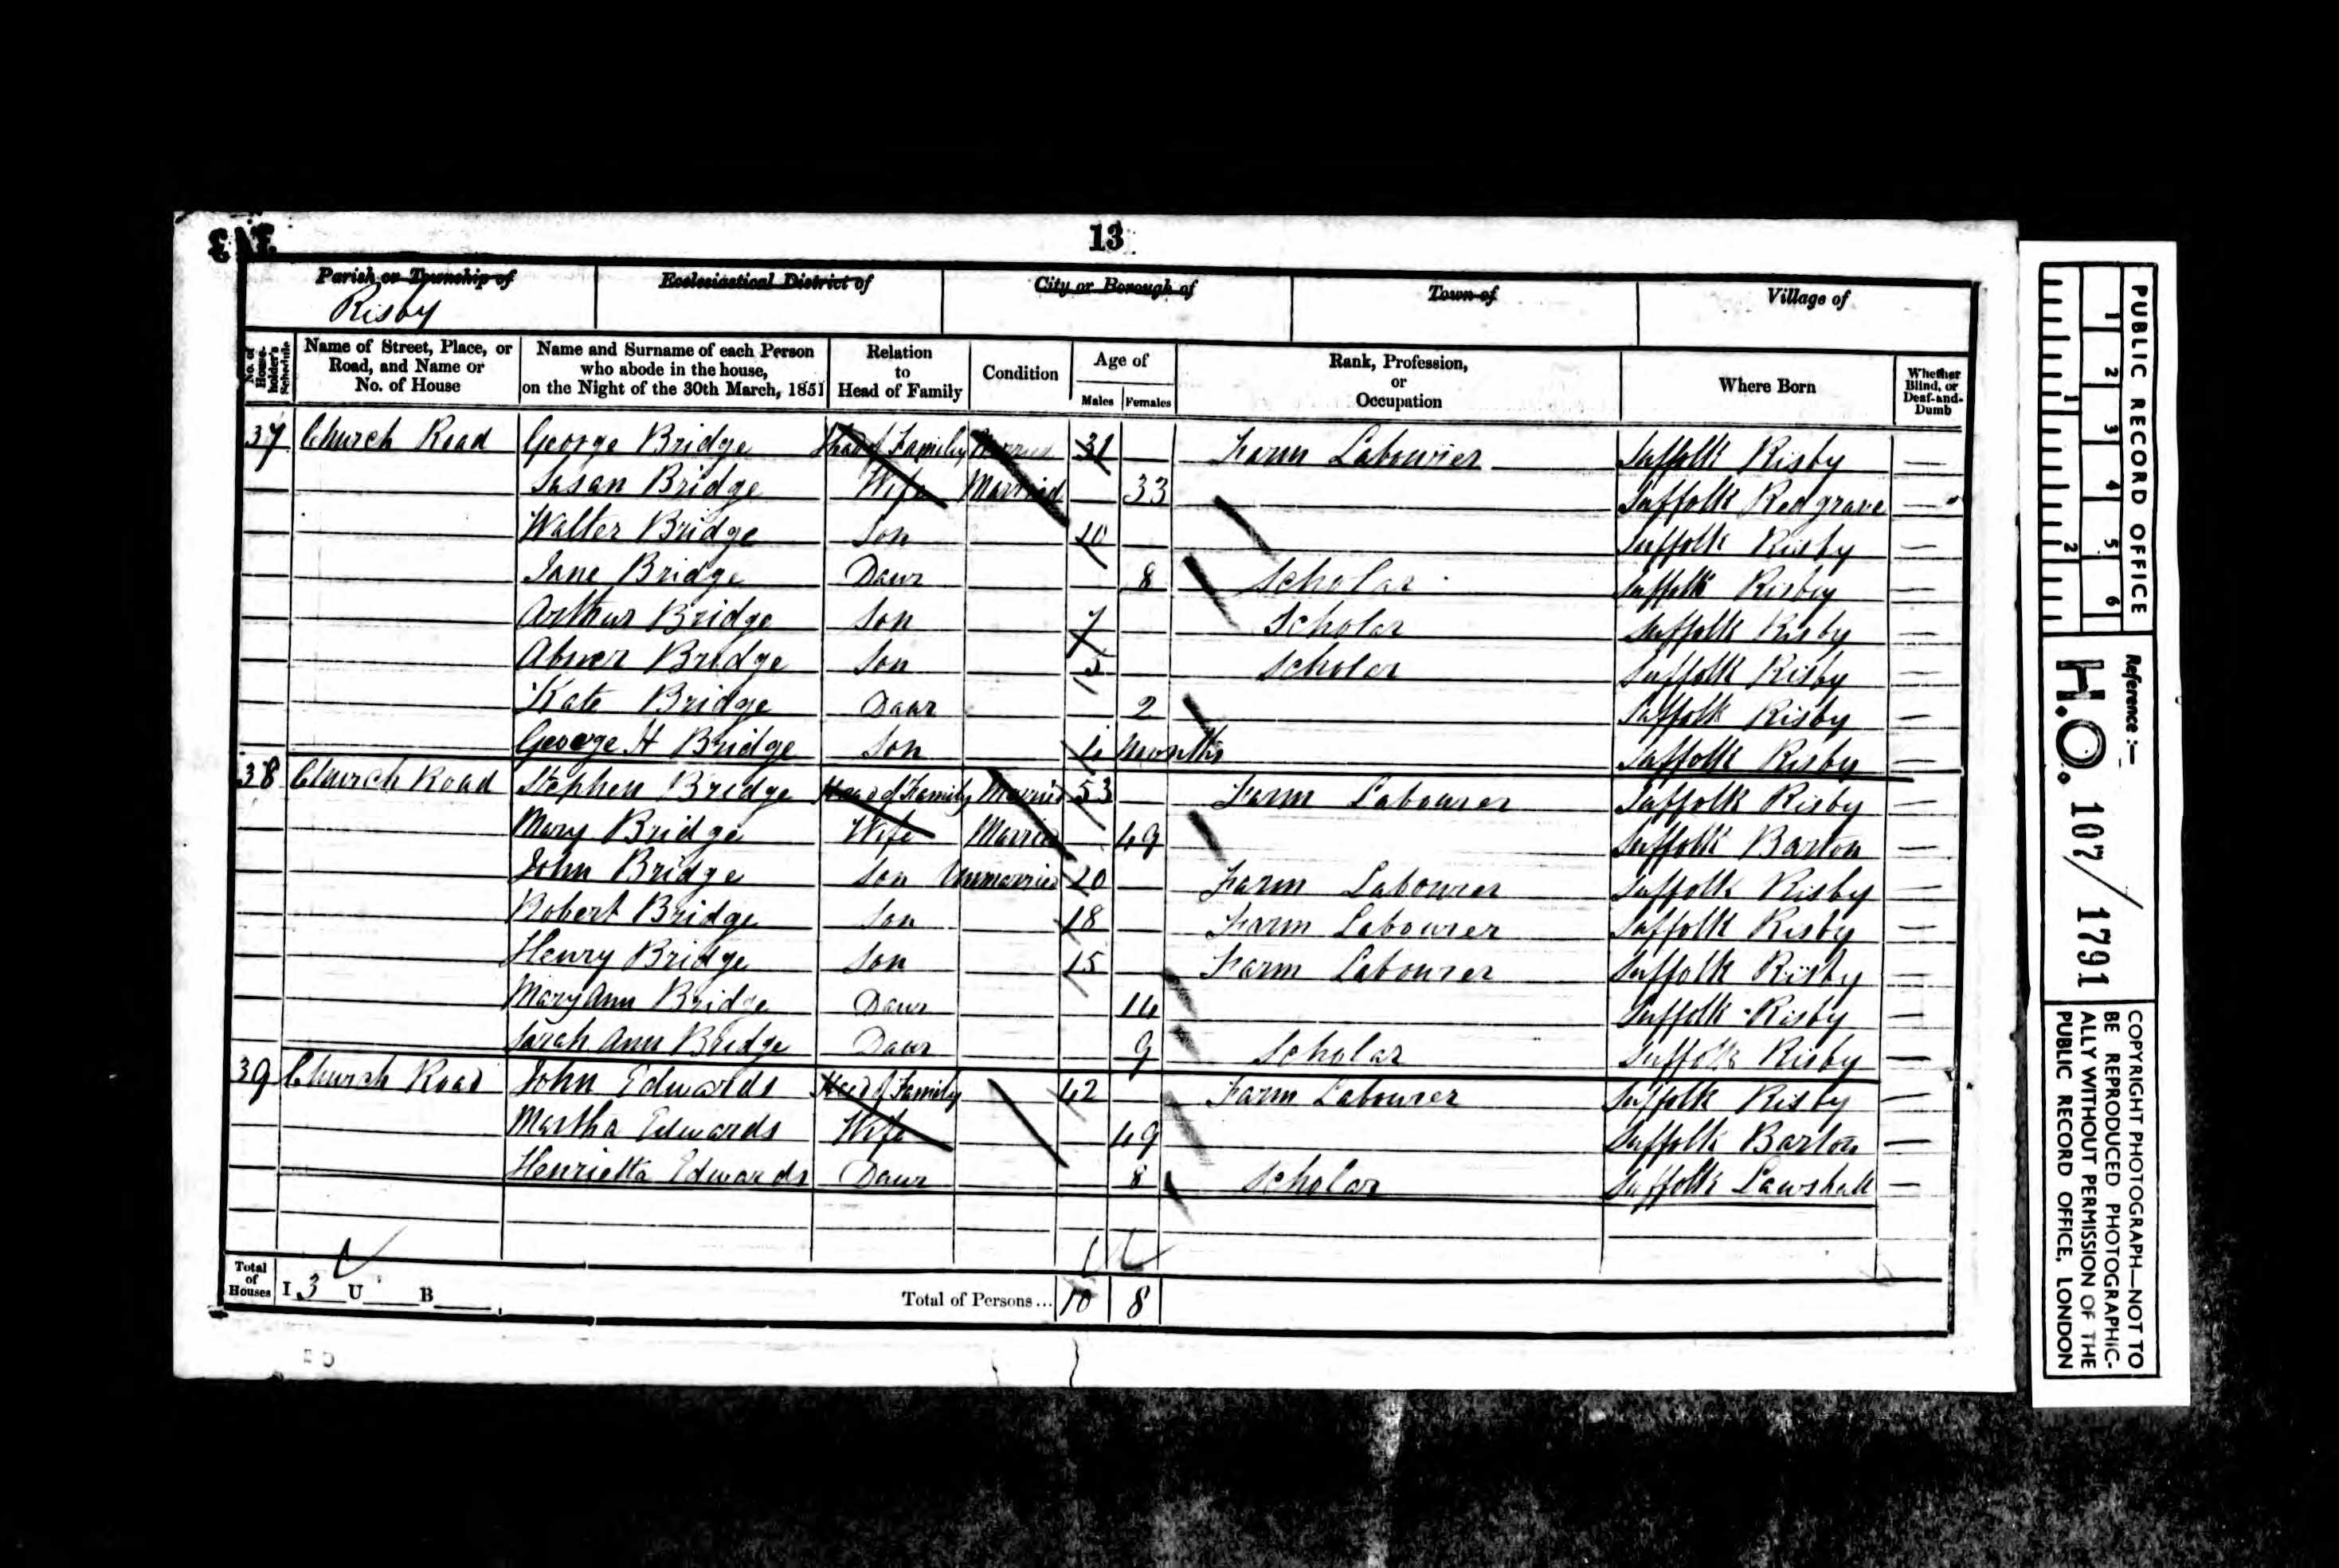 13
Parish or Township of Ecclesiastical District of City or Borough of Town of Village of
Risby
No. of House-holder's Schedule Name of Street, Place, or Road, and Name or No. of House Name and Surname of each Person who abode in the house, on the Night of the 30th March, 1851 Relation to Head of Family Condition Age of Males Females Rank, Profession, or Occupation Where Born Whether Blind, or Deaf-and-Dumb
37 Church Road George Bridge Head of Family Married 31 Farm Labourer Suffolk Risby —
Susan Bridge Wife Married 33 Suffolk Redgrave —
Walter Bridge Son 10 Suffolk Risby —
Jane Bridge Daur 8 Scholar Suffolk Risby —
Arthur Bridge Son 7 Scholar Suffolk Risby —
Abner Bridge Son 5 Scholar Suffolk Risby —
Kate Bridge Daur 2 Suffolk Risby —
George H Bridge Son 4 Months Suffolk Risby —
38 Church Road Stephen Bridge Head of Family Married 53 Farm Labourer Suffolk Risby —
Mary Bridge Wife Married 49 Suffolk Barton —
John Bridge Son Unmarried 20 Farm Labourer Suffolk Risby —
Robert Bridge Son 18 Farm Labourer Suffolk Risby —
Henry Bridge Son 15 Farm Labourer Suffolk Risby —
Mary Ann Bridge Daur 14 Suffolk Risby —
Sarah Ann Bridge Daur 9 Scholar Suffolk Risby —
39 Church Road John Edwards Head of Family 42 Farm Labourer Suffolk Risby —
Martha Edwards Wife 49 Suffolk Barton —
Henrietta Edwards Daur 8 Scholar Suffolk Lawshall —
Total of Houses I 3 U B Total of Persons... 10 8
PUBLIC RECORD OFFICE
1 2 3 4 5 6
1 2
Reference :—
H.O. 107/1791
COPYRIGHT PHOTOGRAPH—NOT TO
BE REPRODUCED PHOTOGRAPHIC-
ALLY WITHOUT PERMISSION OF THE
PUBLIC RECORD OFFICE, LONDON